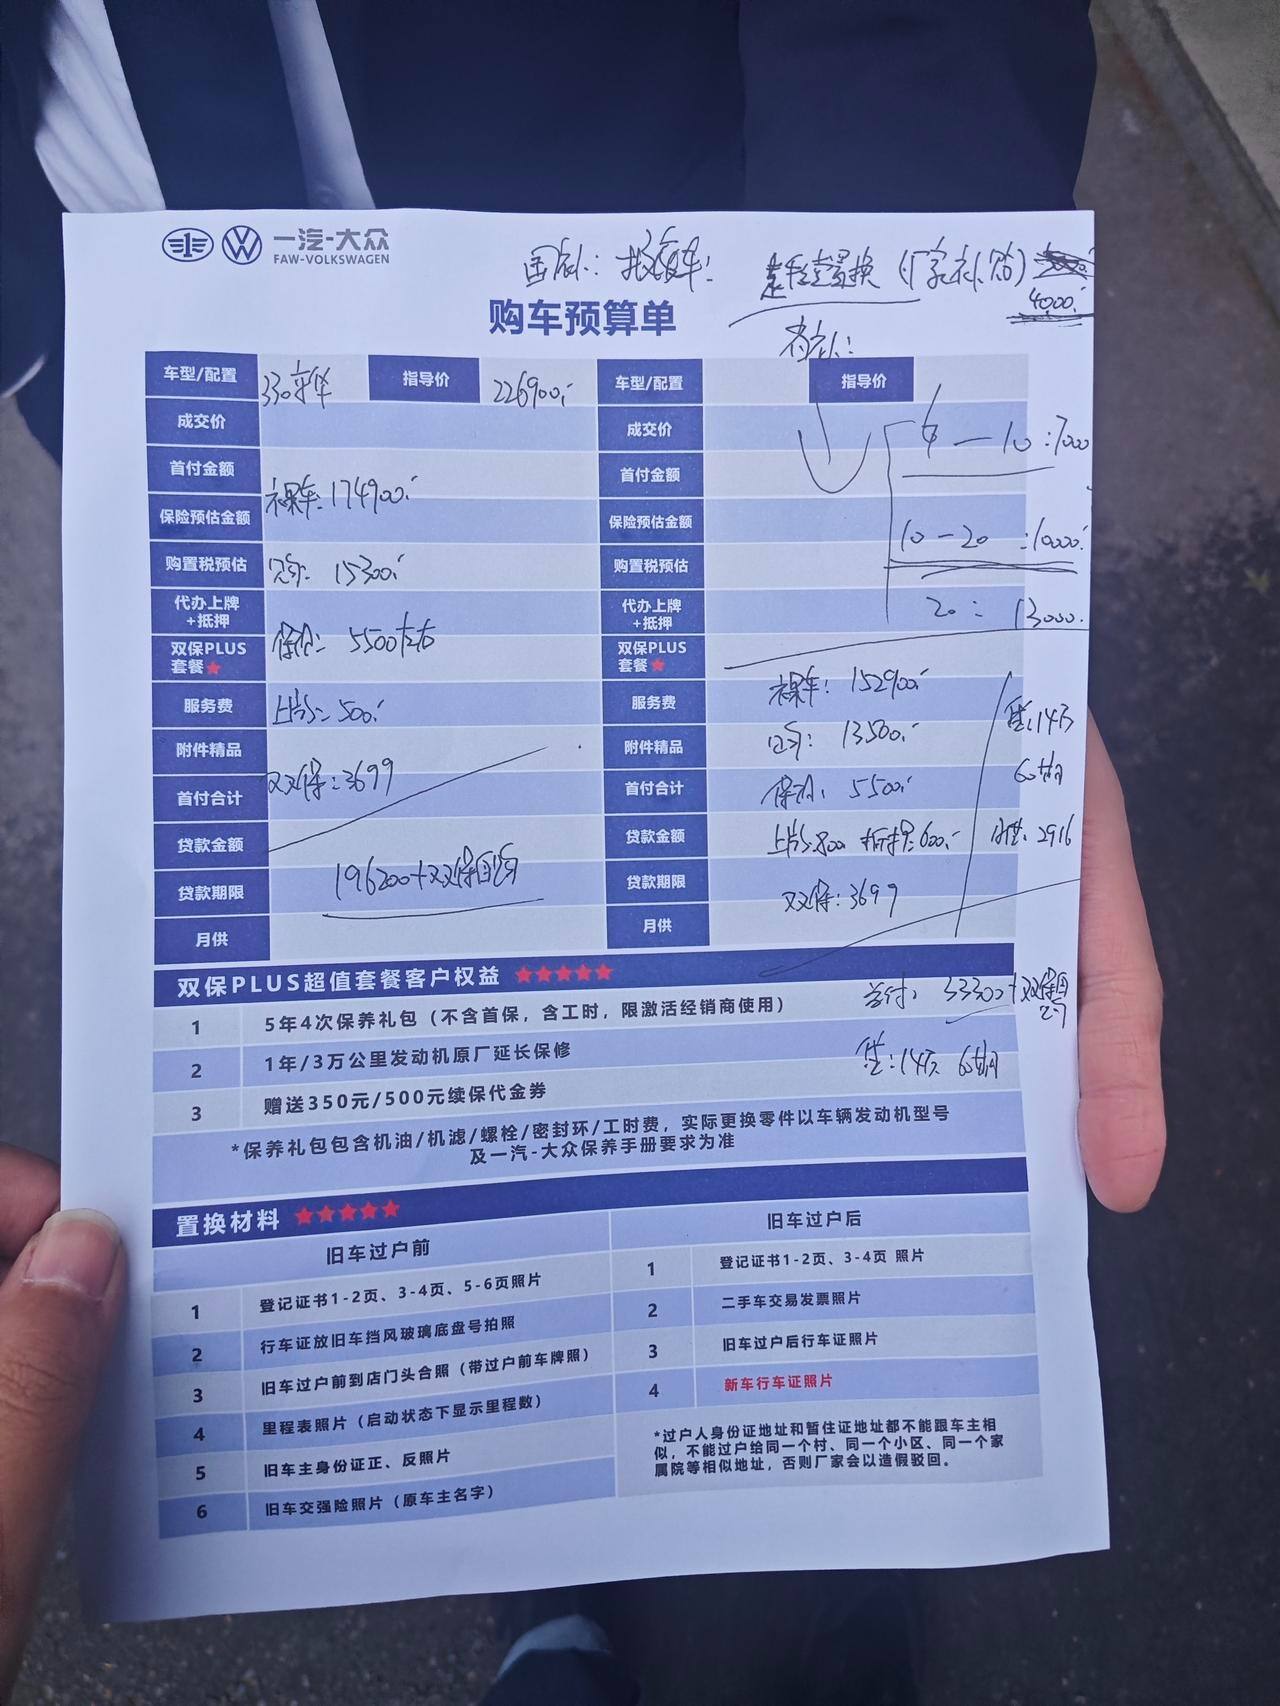 一汽-大众
FAW-VOLKSWAGEN
国补: 报废车:
置换 (厂家补贴)
4000.
购车预算单
省补:
车型/配置 330 指导价 226900.
成交价
首付金额 裸车: 174900.
保险预估金额
购置税预估 15300.
代办上牌+抵押
保险: 5500左右
双保PLUS套餐
服务费 上牌: 500.
附件精品
双保: 3699
首付合计
贷款金额
贷款期限 196200+双保
月供
车型/配置 指导价
成交价 — 10 : 7000
首付金额
保险预估金额 10 — 20 : 10000.
购置税预估
代办上牌+抵押 20 : 13000.
双保PLUS套餐
服务费 裸车: 152900.
附件精品 13500.
贷: 14万
60期
首付合计 保险: 5500.
贷款金额 上牌: 800 抵押: 600.
月供: 2916
贷款期限 双保: 3699
月供
双保PLUS超值套餐客户权益
首付: 33300+双保
1 5年4次保养礼包（不含首保，含工时，限激活经销商使用）
2 1年/3万公里发动机原厂延长保修
贷: 14万 60期
3 赠送350元/500元续保代金券
*保养礼包包含机油/机滤/螺栓/密封环/工时费，实际更换零件以车辆发动机型号
及一汽-大众保养手册要求为准
置换材料
旧车过户前
1 登记证书1-2页、3-4页、5-6页照片
2 行车证放旧车挡风玻璃底盘号拍照
3 旧车过户前到店门头合照（带过户前车牌照）
4 里程表照片（启动状态下显示里程数）
5 旧车主身份证正、反照片
6 旧车交强险照片（原车主名字）
旧车过户后
1 登记证书1-2页、3-4页 照片
2 二手车交易发票照片
3 旧车过户后行车证照片
4 新车行车证照片
*过户人身份证地址和暂住证地址都不能跟车主相
似，不能过户给同一个村、同一个小区、同一个家
属院等相似地址，否则厂家会以造假驳回。